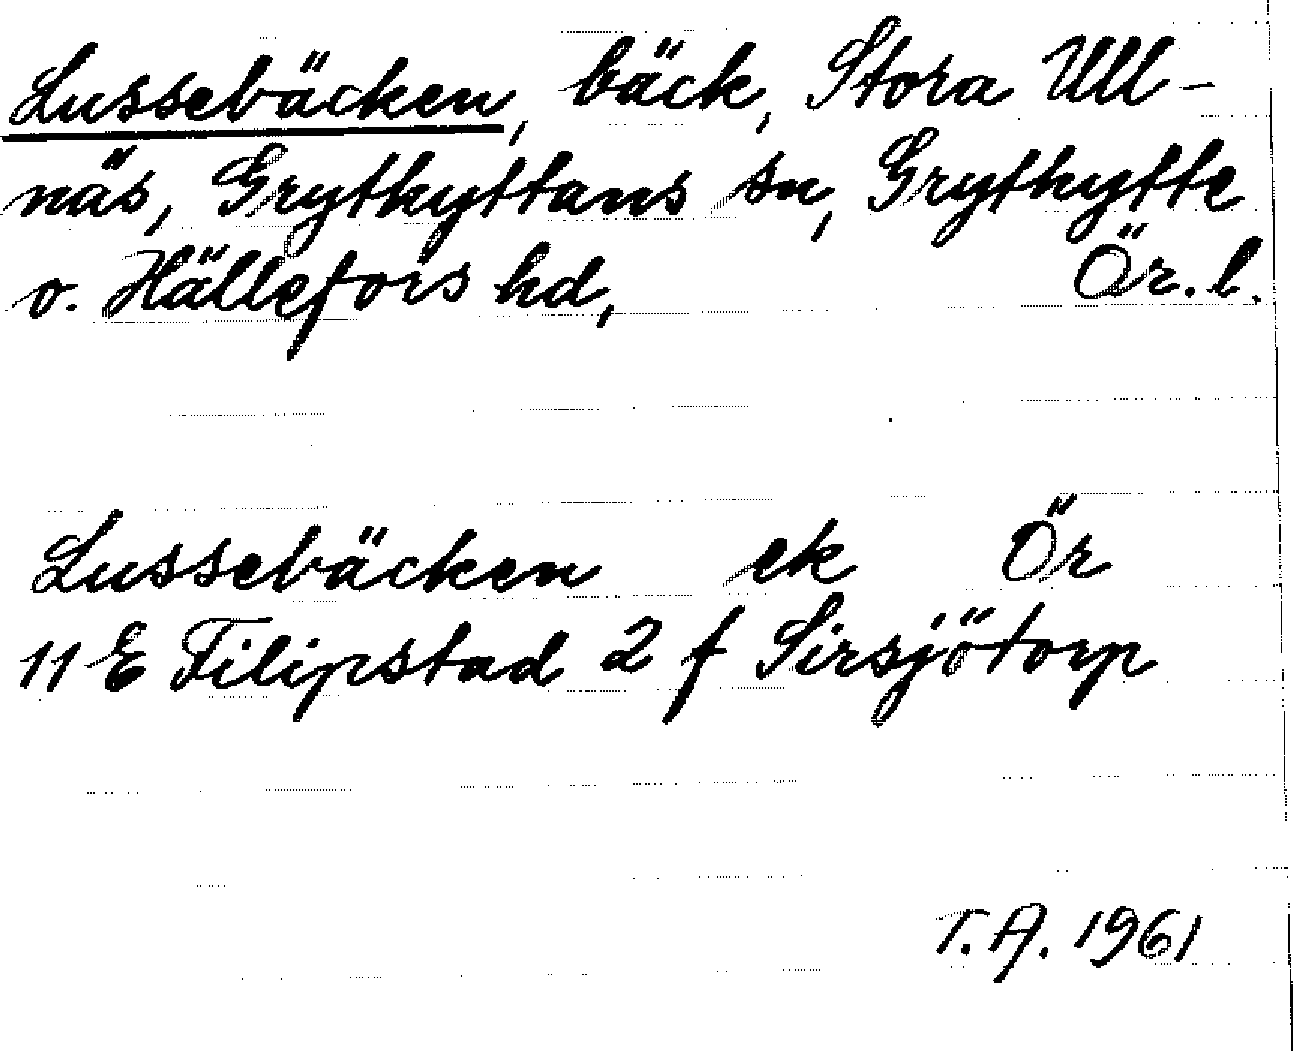 Lussebäcken, bäck, Stora Ull-
näs, Grythyttans sn, Grythytte
o. Hällefors hd, Ör. l.
Lussebäcken ek Ör
11 E Filipstad 2 f Sirsjötorp
T.A. 1961